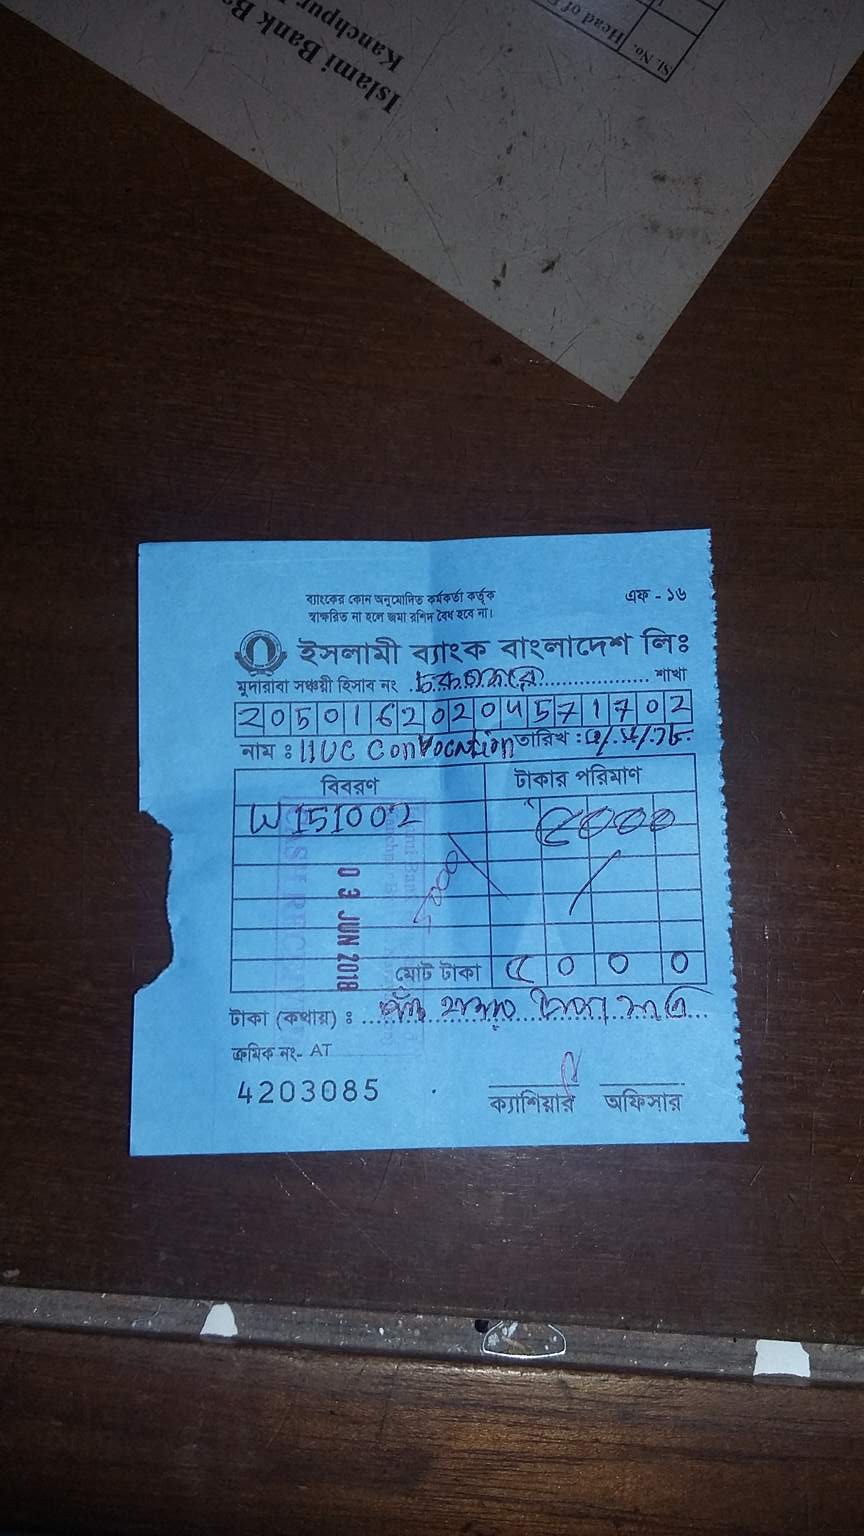 Islami Bank Ba
Kanchpur
Head of
Sl. No.
ব্যাংকের কোন অনুমোদিত কর্মকর্তা কর্তৃক
স্বাক্ষরিত না হলে জমা রশিদ বৈধ হবে না।
এফ - ১৬
ইসলামী ব্যাংক বাংলাদেশ লিঃ
মুদারাবা সঞ্চয়ী হিসাব নং চকবাজার শাখা
20501620204571702
নাম ঃ IIUC Convocation তারিখ :
বিবরণ টাকার পরিমাণ
W151002 ৫০০০
5000/
03 JUN 2018
মোট টাকা ৫০০০
টাকা (কথায়) ঃ পাঁচ হাজার টাকা মাত্র
ক্রমিক নং- AT
4203085
ক্যাশিয়ার অফিসার